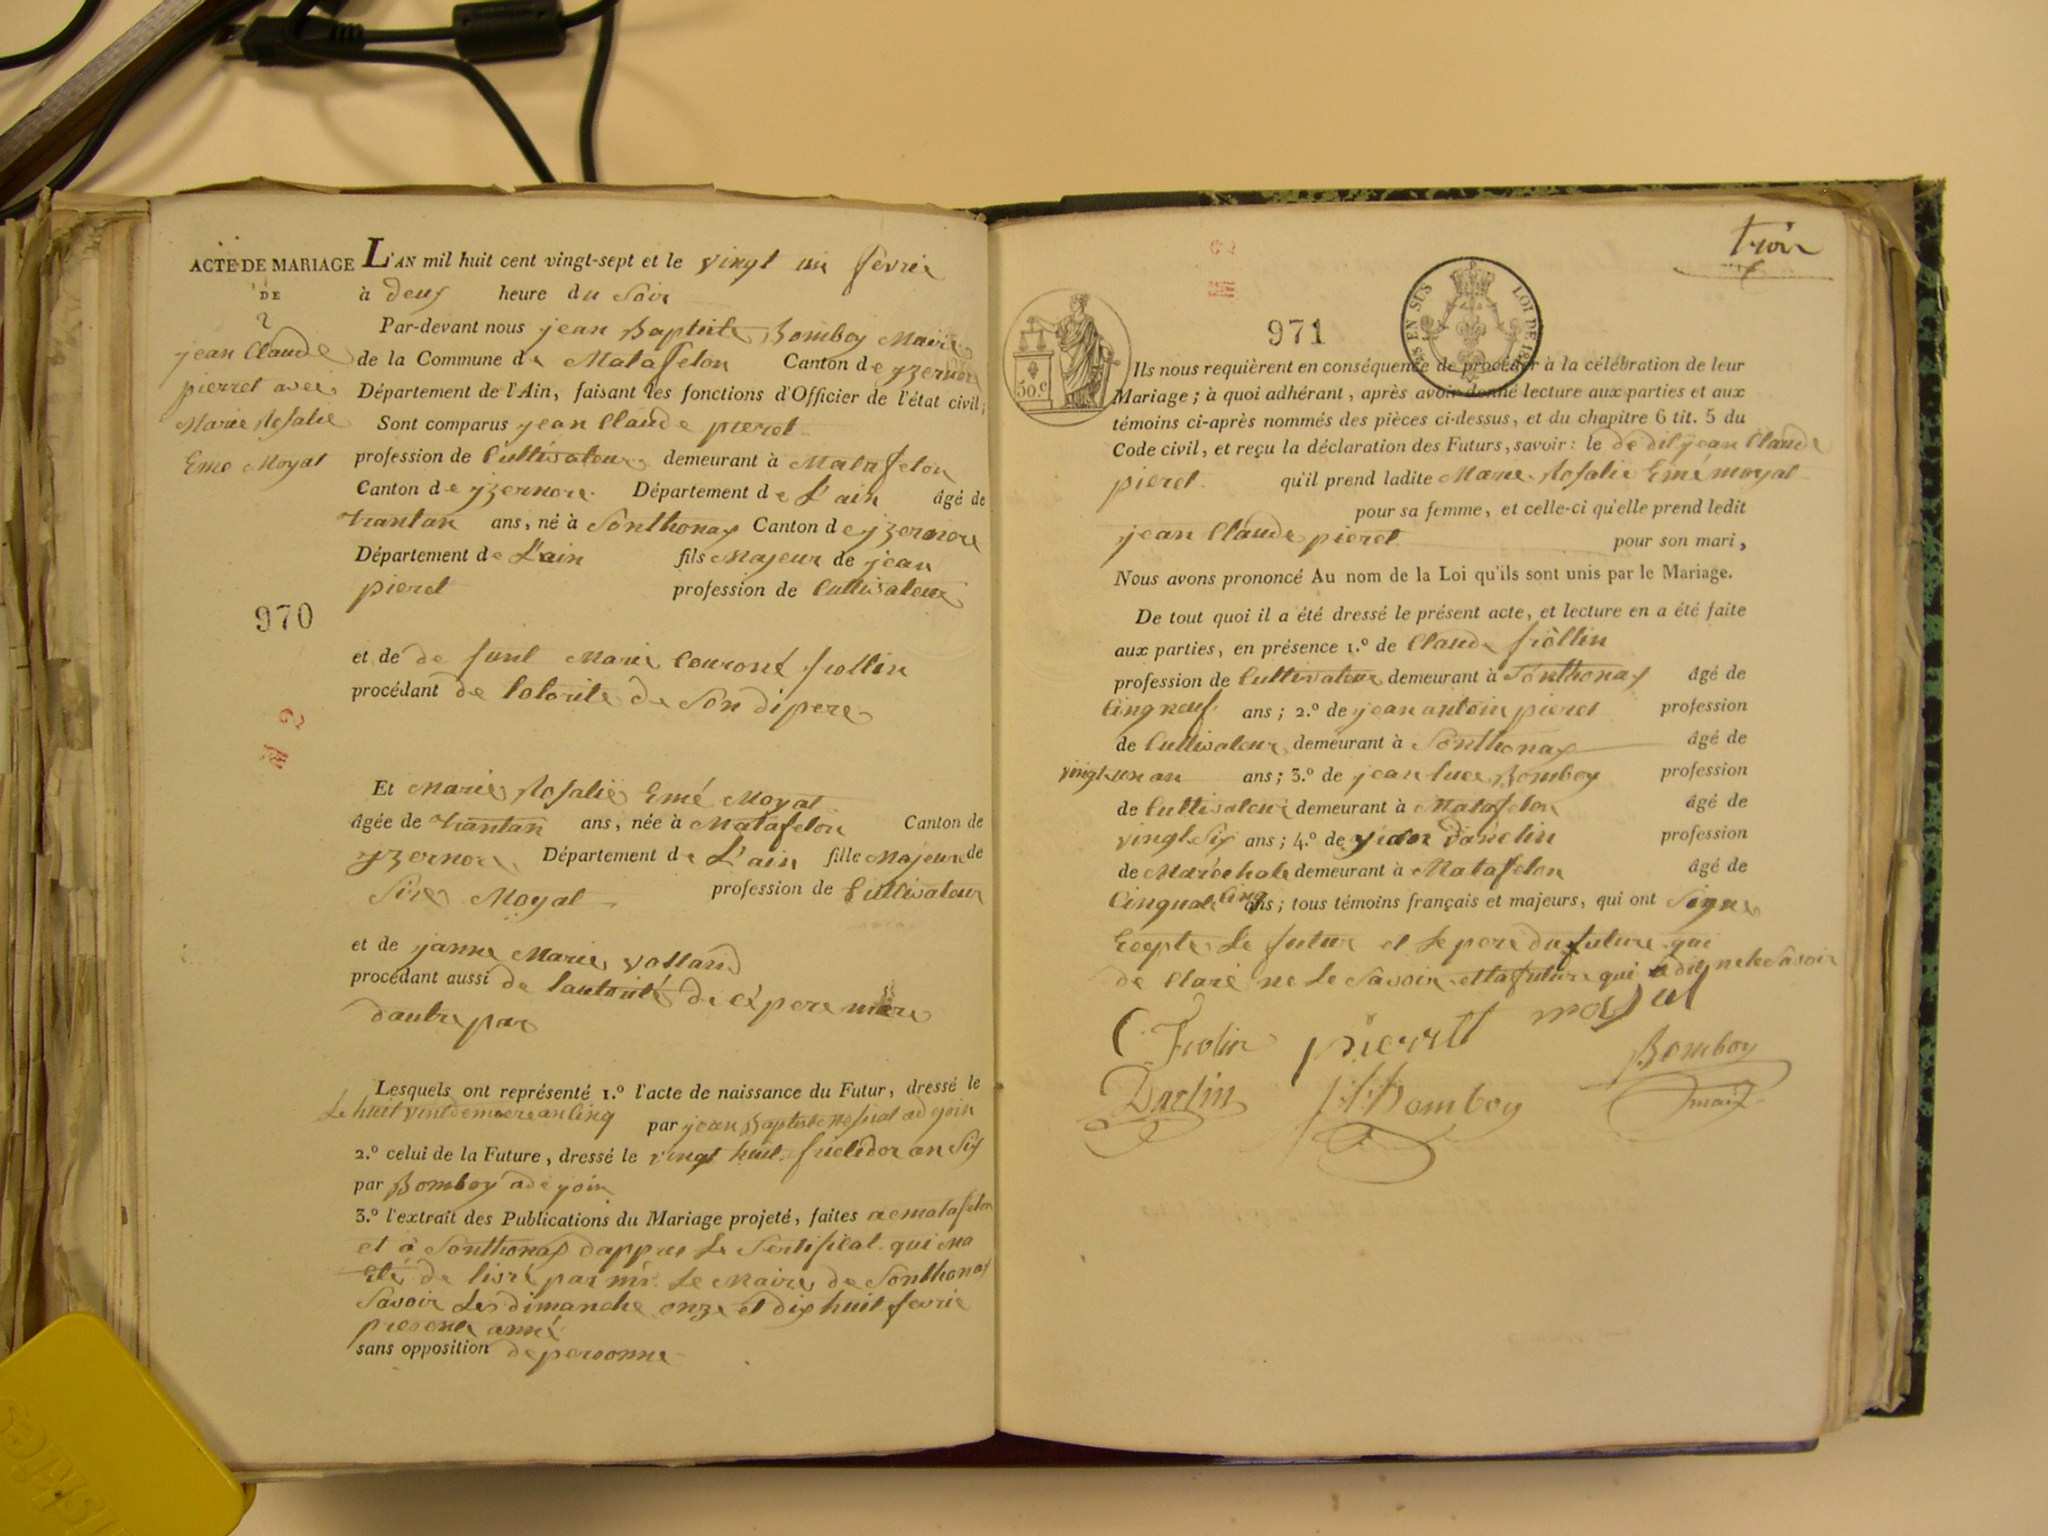 ACTE DE MARIAGE
DE
2
jean Claude
pierret avec
Marie Rosalie
Emé Moyat
970
L'AN mil huit cent vingt-sept et le vingt un fevrie
à deux heure du Soir
Par-devant nous jean Baptiste Bomboy Maire
de la Commune de Matafelon Canton de yzernore
Département de l'Ain, faisant les fonctions d'Officier de l'état civil;
Sont comparus jean Claude pieret
profession de Cultivateur demeurant à Matafelon
Canton de yzernore Département de L'ain âgé de
trantan ans, né à Sonthonax Canton de yzernore
Département de L'ain fils Majeur de jean
pieret profession de Cultivateur
et de de funt Marie Couroné frollin
procédant de lotorite de Son di pere
Et Marie Rosalie Emé Moyat
âgée de trantan ans, née à Matafelon Canton de
yzernore Département de L'ain fille Majeure de
Moyat profession de Cultivateur
et de janne Marie volland
procédant aussi de lautorité de pere mere
dautre par
Lesquels ont représenté 1.º l'acte de naissance du Futur, dressé le
Le huit vindemiere an Cinq par jean Baptiste ad join
2.º celui de la Future, dressé le vingt huit fructidor an Six
par Bomboy ade join
3.º l'extrait des Publications du Mariage projeté, faites a ematafelon
et à Sonthonax dappres Le Sertificat qui ma
Eté de livré par mr. Le Maire de Sonthonax
Savoir Les dimanche onze et dix huit fevrie
presente anné
sans opposition de personne
trois
971
EN SUS LOI DE
50.c
Ils nous requièrent en conséquence de procéder à la célébration de leur
Mariage; à quoi adhérant, après avoir donné lecture aux parties et aux
témoins ci-après nommés des pièces ci-dessus, et du chapitre 6 tit. 5 du
Code civil, et reçu la déclaration des Futurs, savoir: le de dit jean Claude
pieret qu'il prend ladite Marie Rosalie Emé moyat
pour sa femme, et celle-ci qu'elle prend ledit
jean Claude pieret pour son mari,
Nous avons prononcé Au nom de la Loi qu'ils sont unis par le Mariage.
De tout quoi il a été dressé le présent acte, et lecture en a été faite
aux parties, en présence 1.º de Claude frollin
profession de Cultivateur demeurant à Sonthonax âgé de
ans; 2.º de jean antoin pieret profession
de Cultivateur demeurant à Sonthonax âgé de
vingt un an ans; 3.º de jean luce Bomboy profession
de Cultivateur demeurant à Matafelon âgé de
vingt Six ans; 4.º de profession
de Maréchale demeurant à Matafelon âgé de
Cinquate Cinq ans; tous témoins français et majeurs, qui ont Signe
Ecepte Le futur et Le pere du future qui
de Claré ne Le Savoir et la future qui a dit ne le Savoir
C Frolin pierrett moyat
Bomboy
Darlin Bomboy maire